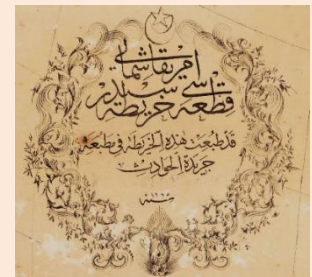 امريقا شمالى
قطعه سى خريطه سيدر
قد طبعت هذه الخريطه فى مطبعه
جريدة الحوادث
سنه